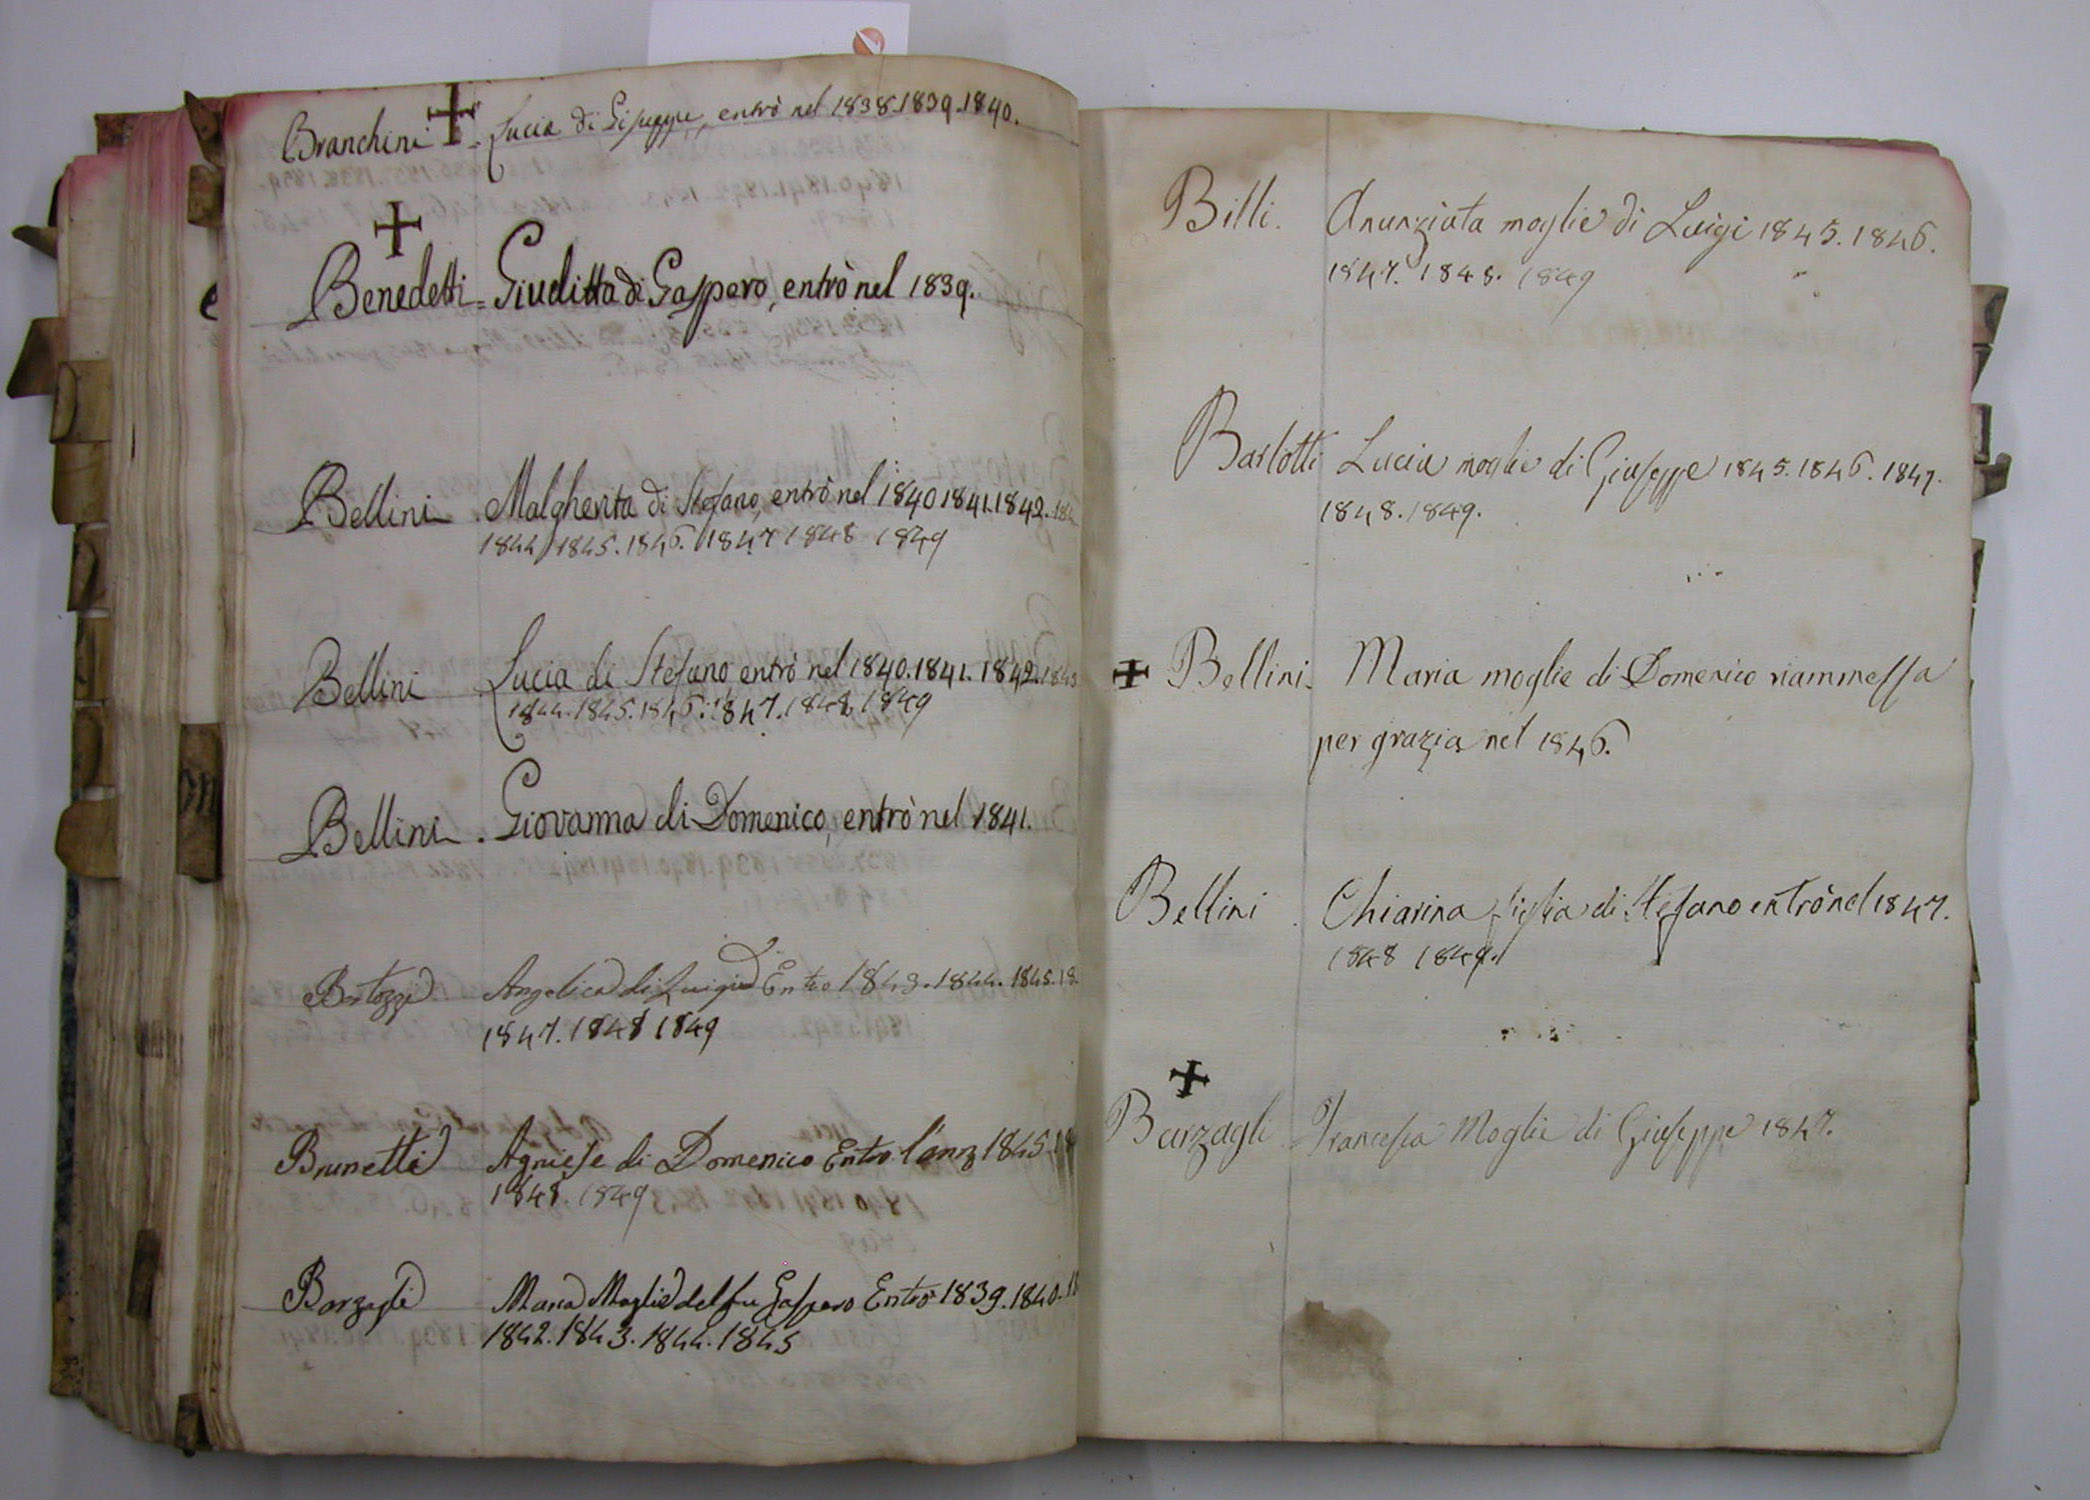 Branchini = Lucia di Giseppe, entrò nel 1838.1839.1840.
Benedetti = Giuditta di Gaspero, entrò nel 1839.
Bellini . Malgherita di Stefano, entrò nel 1840 1841.1842.
1844 1845. 1846. 1847 1848 1849
Bellini Lucia di Stefano entrò nel 1840.1841.1842.1843
1844.1845.1846.1847.1848 1849
Bellini . Giovanna di Domenico, entrò nel 1841.
Bertozzi Angelica di Luigi Entro 1843.1844.1845.18
1847. 1848 1849
Brunetti Agniese di Domenico Entro l'ann 1845.
1848. 1849
Barzagli Maria Moglie del fu Gaspero Entrò 1839.1840.
1842.1843.1844.1845
Billi. Anunziata moglie di Luigi 1845.1846.
1847. 1848. 1849
Barlotti Lucia moglie di Giuseppe 1845.1846.1847.
1848.1849.
Bellini. Maria moglie di Domenico riammessa
per grazia nel 1846.
Bellini . Chiarina figlia di Stefano entrò nel 1847.
1848 1849.
Barzagli Francesca Moglie di Giuseppe 1847.